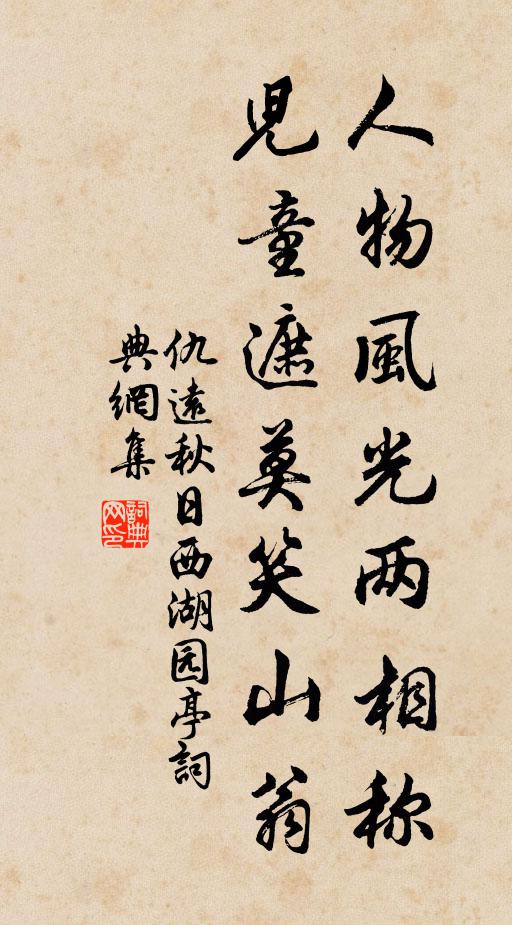 人物風光两相称
児童遮莫笑山翁
仇遠秋日西湖园亭詞
典網集
詞典
网印